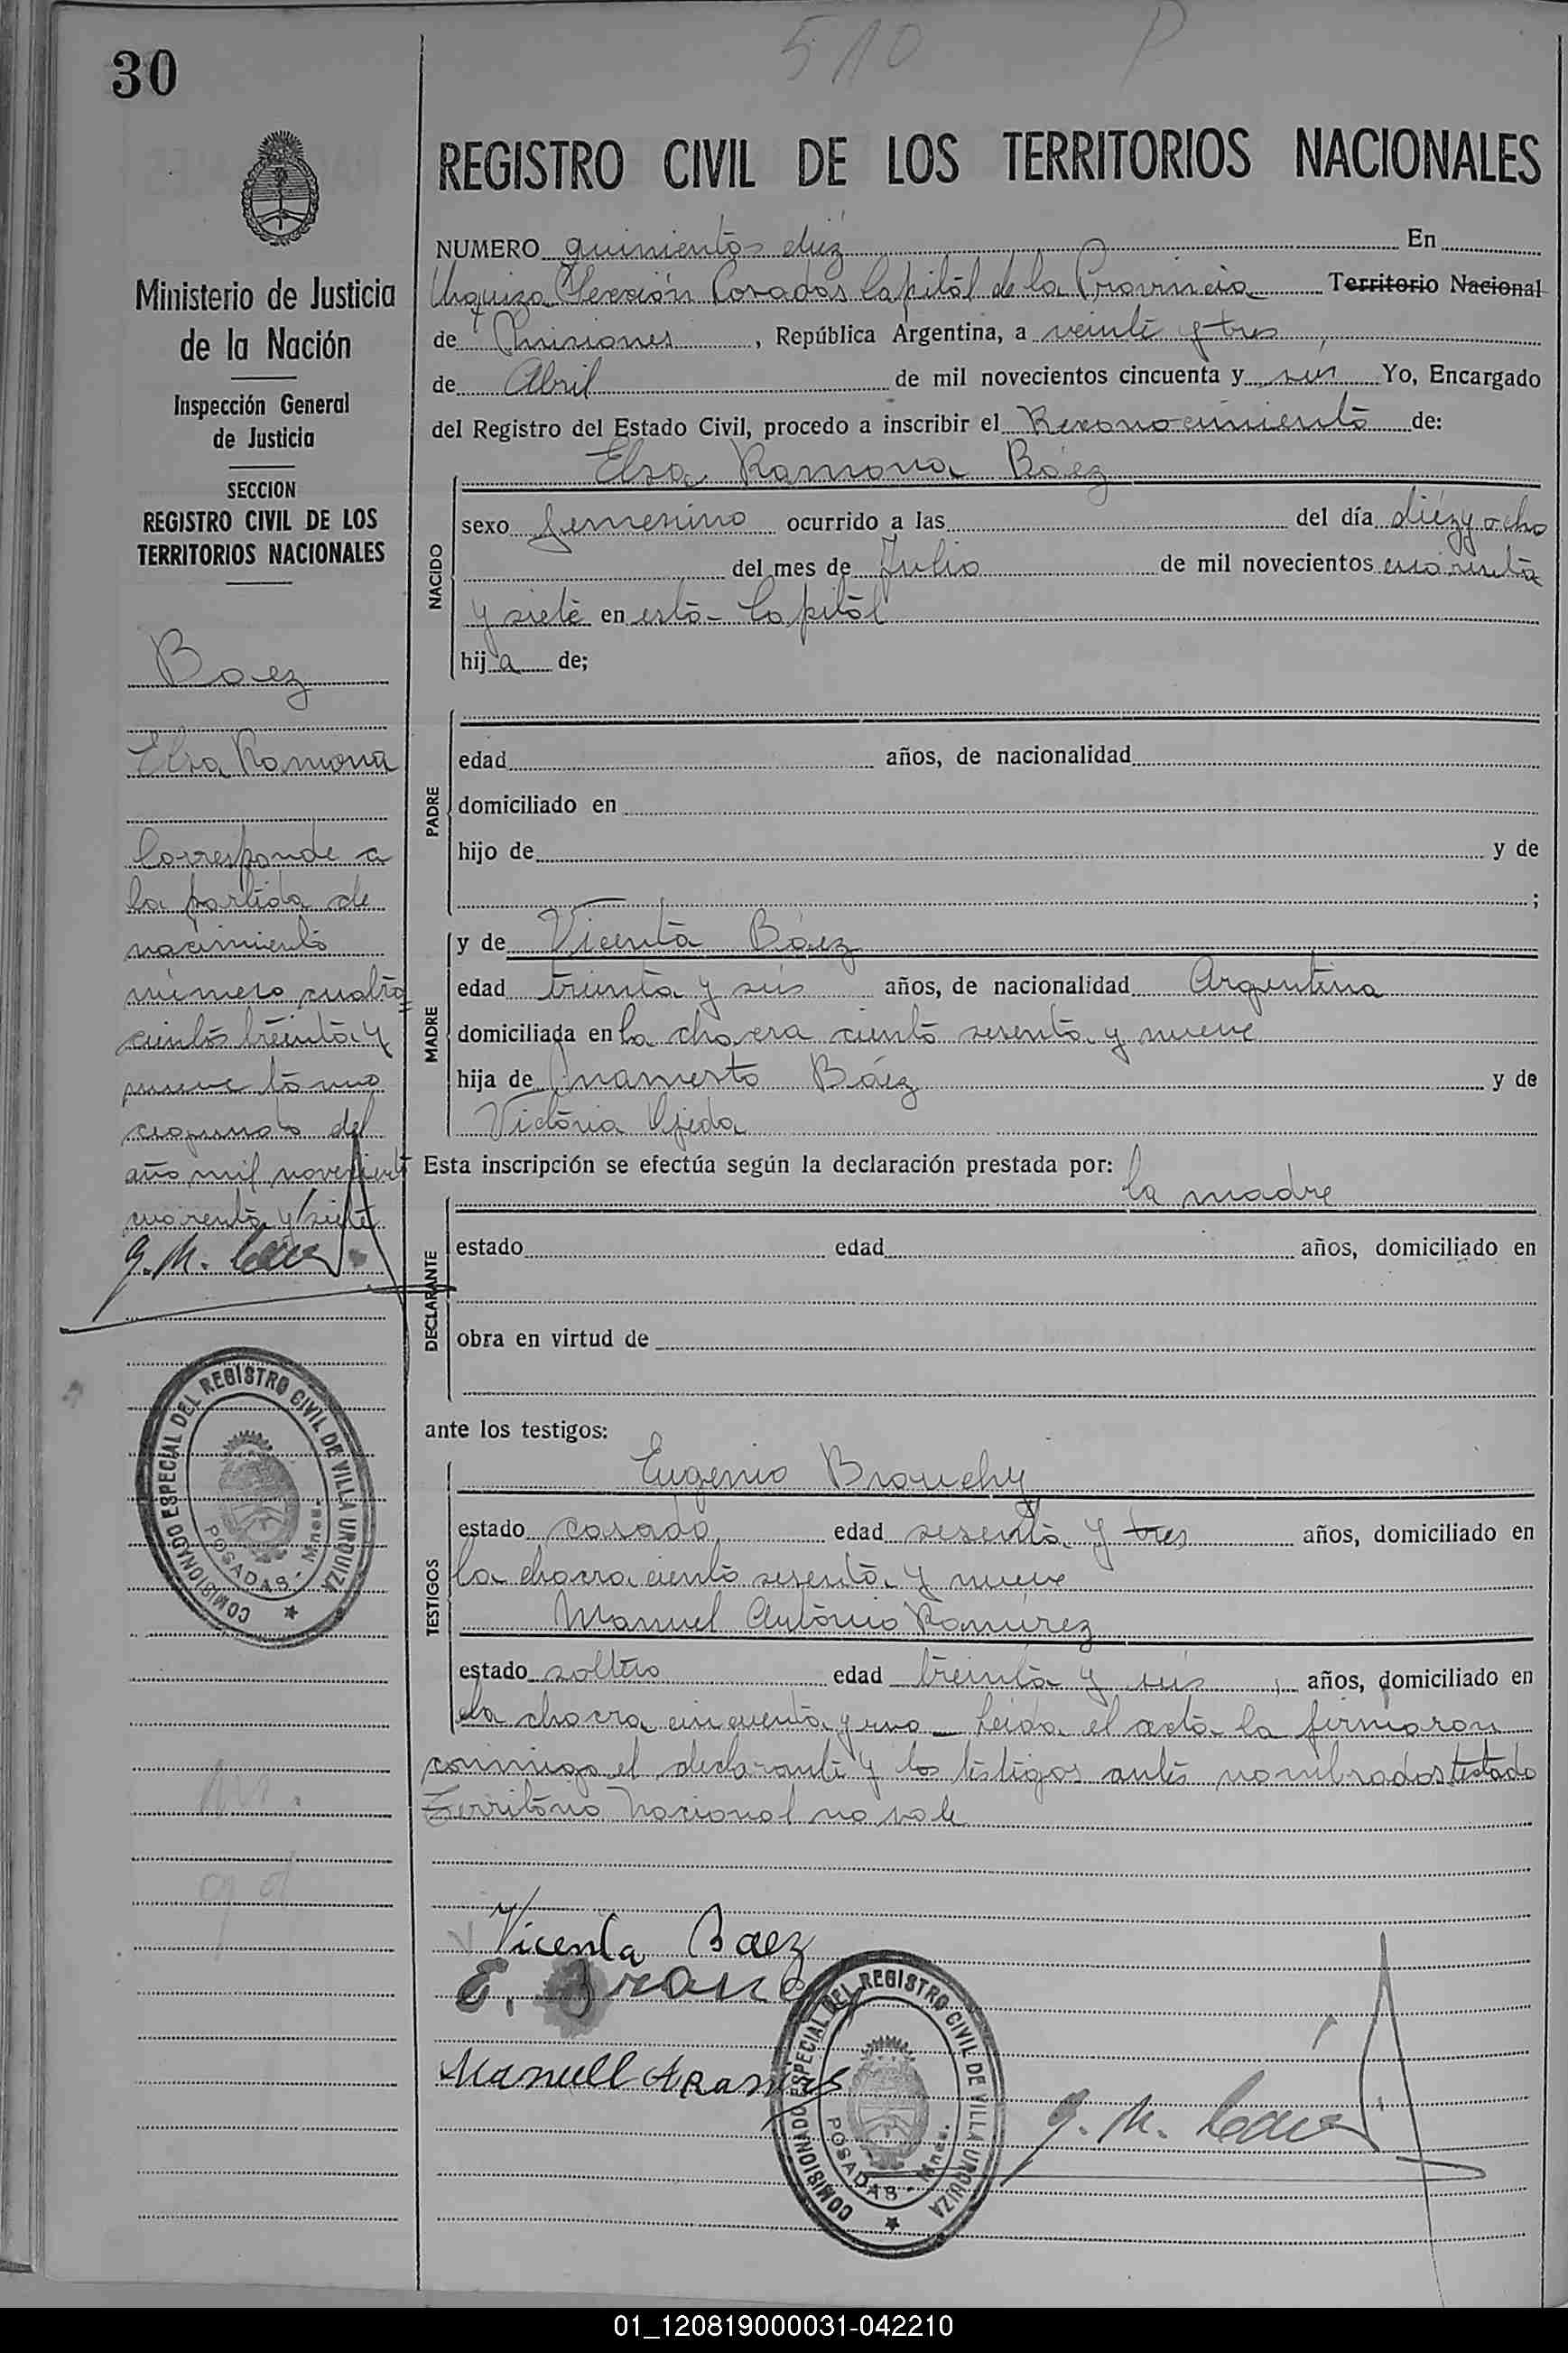 510 P
30
REGISTRO CIVIL DE LOS TERRITORIOS NACIONALES
NUMERO quinientos diéz En
Urquiza Sección Posadas Capital de la Provincia Territorio Nacional
de Misiones, República Argentina, a veinte y tres
de Abril de mil novecientos cincuenta y seis Yo, Encargado
del Registro del Estado Civil, procedo a inscribir el Reconocimiento de:
Elsa Ramona Báez
NACIDO
sexo femenino ocurrido a las del día diéz y ocho
del mes de Julio de mil novecientos cuarenta
y siete en esta Capital
hija de;
PADRE
edad años, de nacionalidad
domiciliado en
hijo de y de
;
MADRE
y de Vicenta Báez
edad treinta y seis años, de nacionalidad Argentina
domiciliada en la chacra ciento sesenta y nueve
hija de Báez y de
Victoria Ojeda
Esta inscripción se efectúa según la declaración prestada por:
la madre
DECLARANTE
estado edad años, domiciliado en
obra en virtud de
ante los testigos:
TESTIGOS
Eugenio Brouchy
estado casado edad sesenta y tres años, domiciliado en
la chacra ciento sesenta y nueve
Manuel Antonio Ramirez
estado soltero edad treinta y seis, años, domiciliado en
la chacra cincuenta y uno - Leida el acta la firmaron
conmigo el declarante y los testigos antes nombrados testado
Territorio Nacional no vale
Vicenta Baez
E.
Manuell A Ramires
G. M.
COMISIONADO ESPECIAL DEL REGISTRO CIVIL DE VILLA URQUIZA
POSADAS - Mnes.
Ministerio de Justicia
de la Nación
Inspección General
de Justicia
SECCION
REGISTRO CIVIL DE LOS
TERRITORIOS NACIONALES
Baez
Elsa Ramona
Corresponde a
la partida de
nacimiento
número cuatro
cientos treinta y
nueve tomo
segundo del
año mil noveciento
cuarenta y siete
G. M.
COMISIONADO ESPECIAL DEL REGISTRO CIVIL DE VILLA URQUIZA
POSADAS - Mnes.
01_120819000031-042210